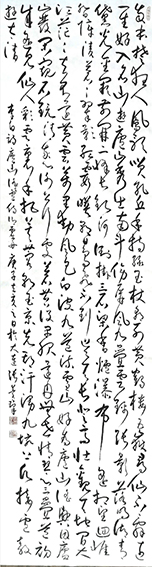 我本楚狂人鳳歌笑孔丘手持綠玉杖朝別黃鶴樓五嶽尋仙不辭遠
一生好入名山遊廬山秀出南斗傍屏風九疊雲錦張影落明湖青
黛光金闕前開二峰長銀河倒掛三石梁香爐瀑布遙相望迴崖
沓嶂凌蒼蒼翠影紅霞映朝日鳥飛不到吳天長登高壯觀天地間大
江茫茫去不還黃雲萬里動風色白波九道流雪山好為廬山謠興因廬
山發閑窺石鏡清我心謝公行處蒼苔沒早服還丹無世情琴心三疊道初
成遙見仙人彩雲裏手把芙蓉朝玉京先期汗漫九垓上願接盧敖
遊太清
李白詩廬山謠寄盧侍御虛舟